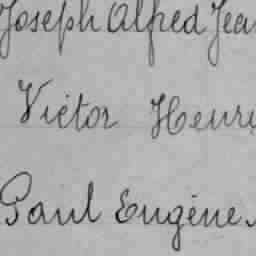 Joseph Alfred Jean
Victor Henri
Paul Eugène